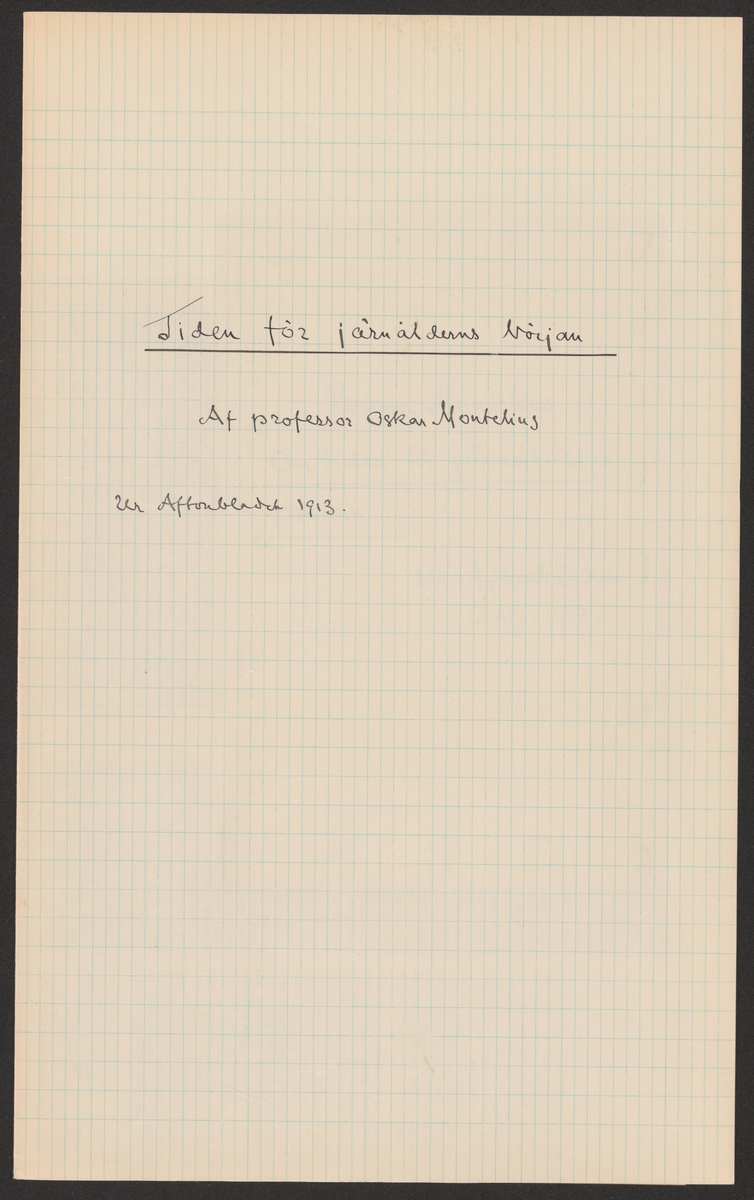 Tiden för järnålderns början
Af professor Oskar Montelius
Ur Aftonbladet 1913.